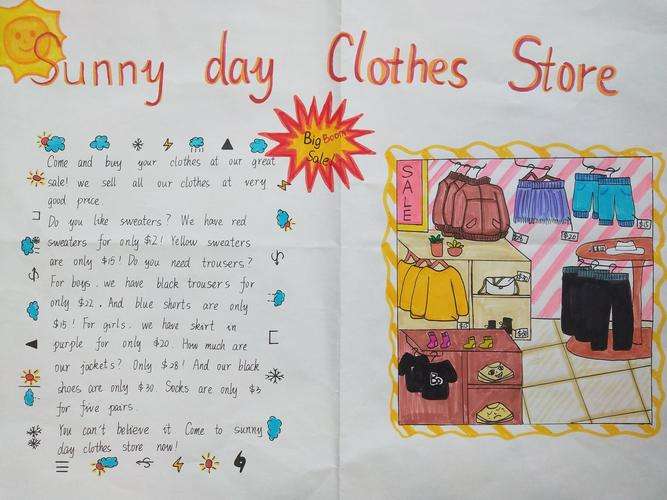 Sunny day Clothes Store
Big Boom
Sale!
Come and buy your clothes at our great
sale! we sell all our clothes at very
good price.
Do you like sweaters? We have red
sweaters for only $21! Yellow sweaters
are only $15! Do you need trousers?
For boys. we have black trousers for
only $22. And blue shorts are only
$15! For girls. we have skirt in
purple for only $20. How much are
our jackets? Only $28! And our black
shoes are only $30 Socks are only $3
for five pairs.
You can't believe it Come to sunny
day clothes store now!
SALE
$20
$15